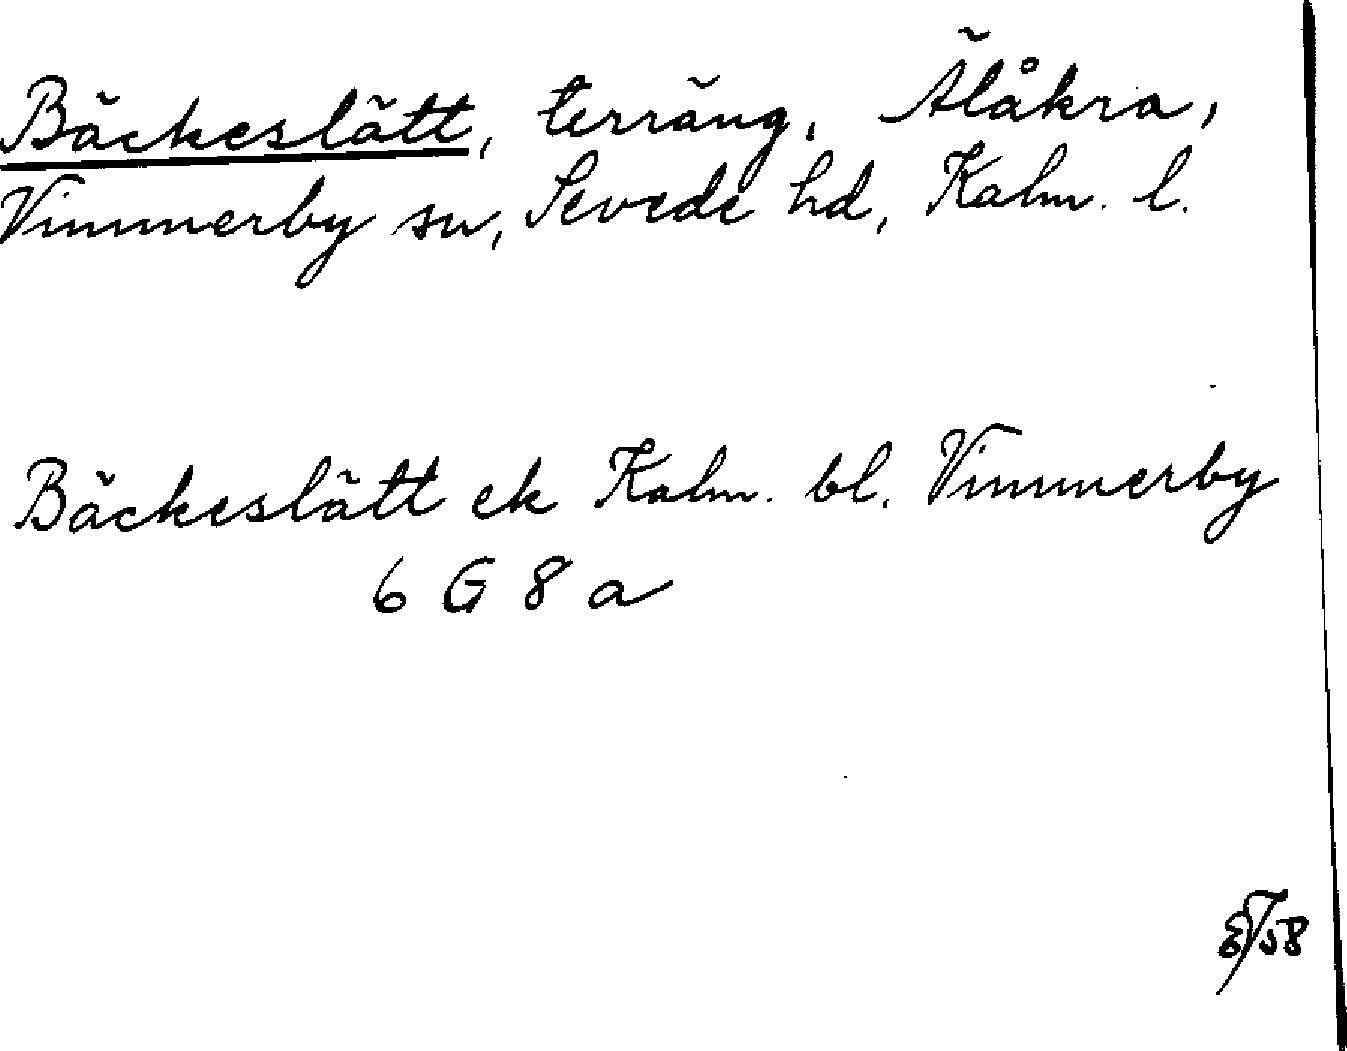 Bäckeslätt, terräng, Älåkra,
Vimmerby sn, Sevede hd, Kalm. l.
Bäckeslätt ek Kalm. bl. Vimmerby
6 G 8 a